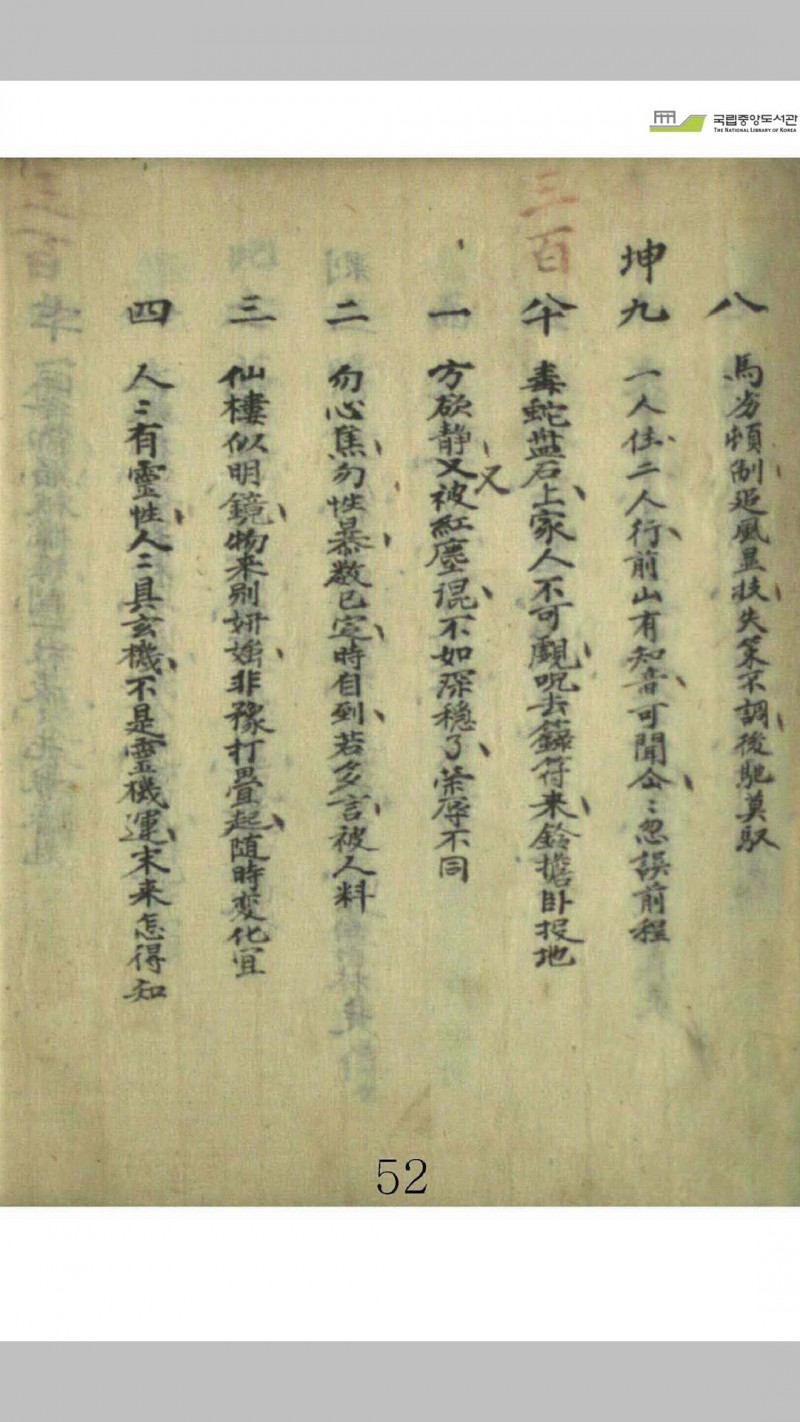 국립중앙도서관
THE NATIONAL LIBRARY OF KOREA
八 馬劣頻制追風显扶失策不調後馳莫馭
坤九 一人住二人行前山有知音可聞公〻忽誤前程
三百八十 毒蛇盤石上家人不可覩呪去籙符来鈴擔卧投地
一 方欲静又被紅塵混不如深穩了荣辱不同
又
二 勿心焦勿性暴数已定時自到若多言被人料
三 仙樓似明鏡物来别妍媸非豫打疊起随時変化宜
四 人〻有靈性人〻具玄機不是靈機運未来怎得知
52